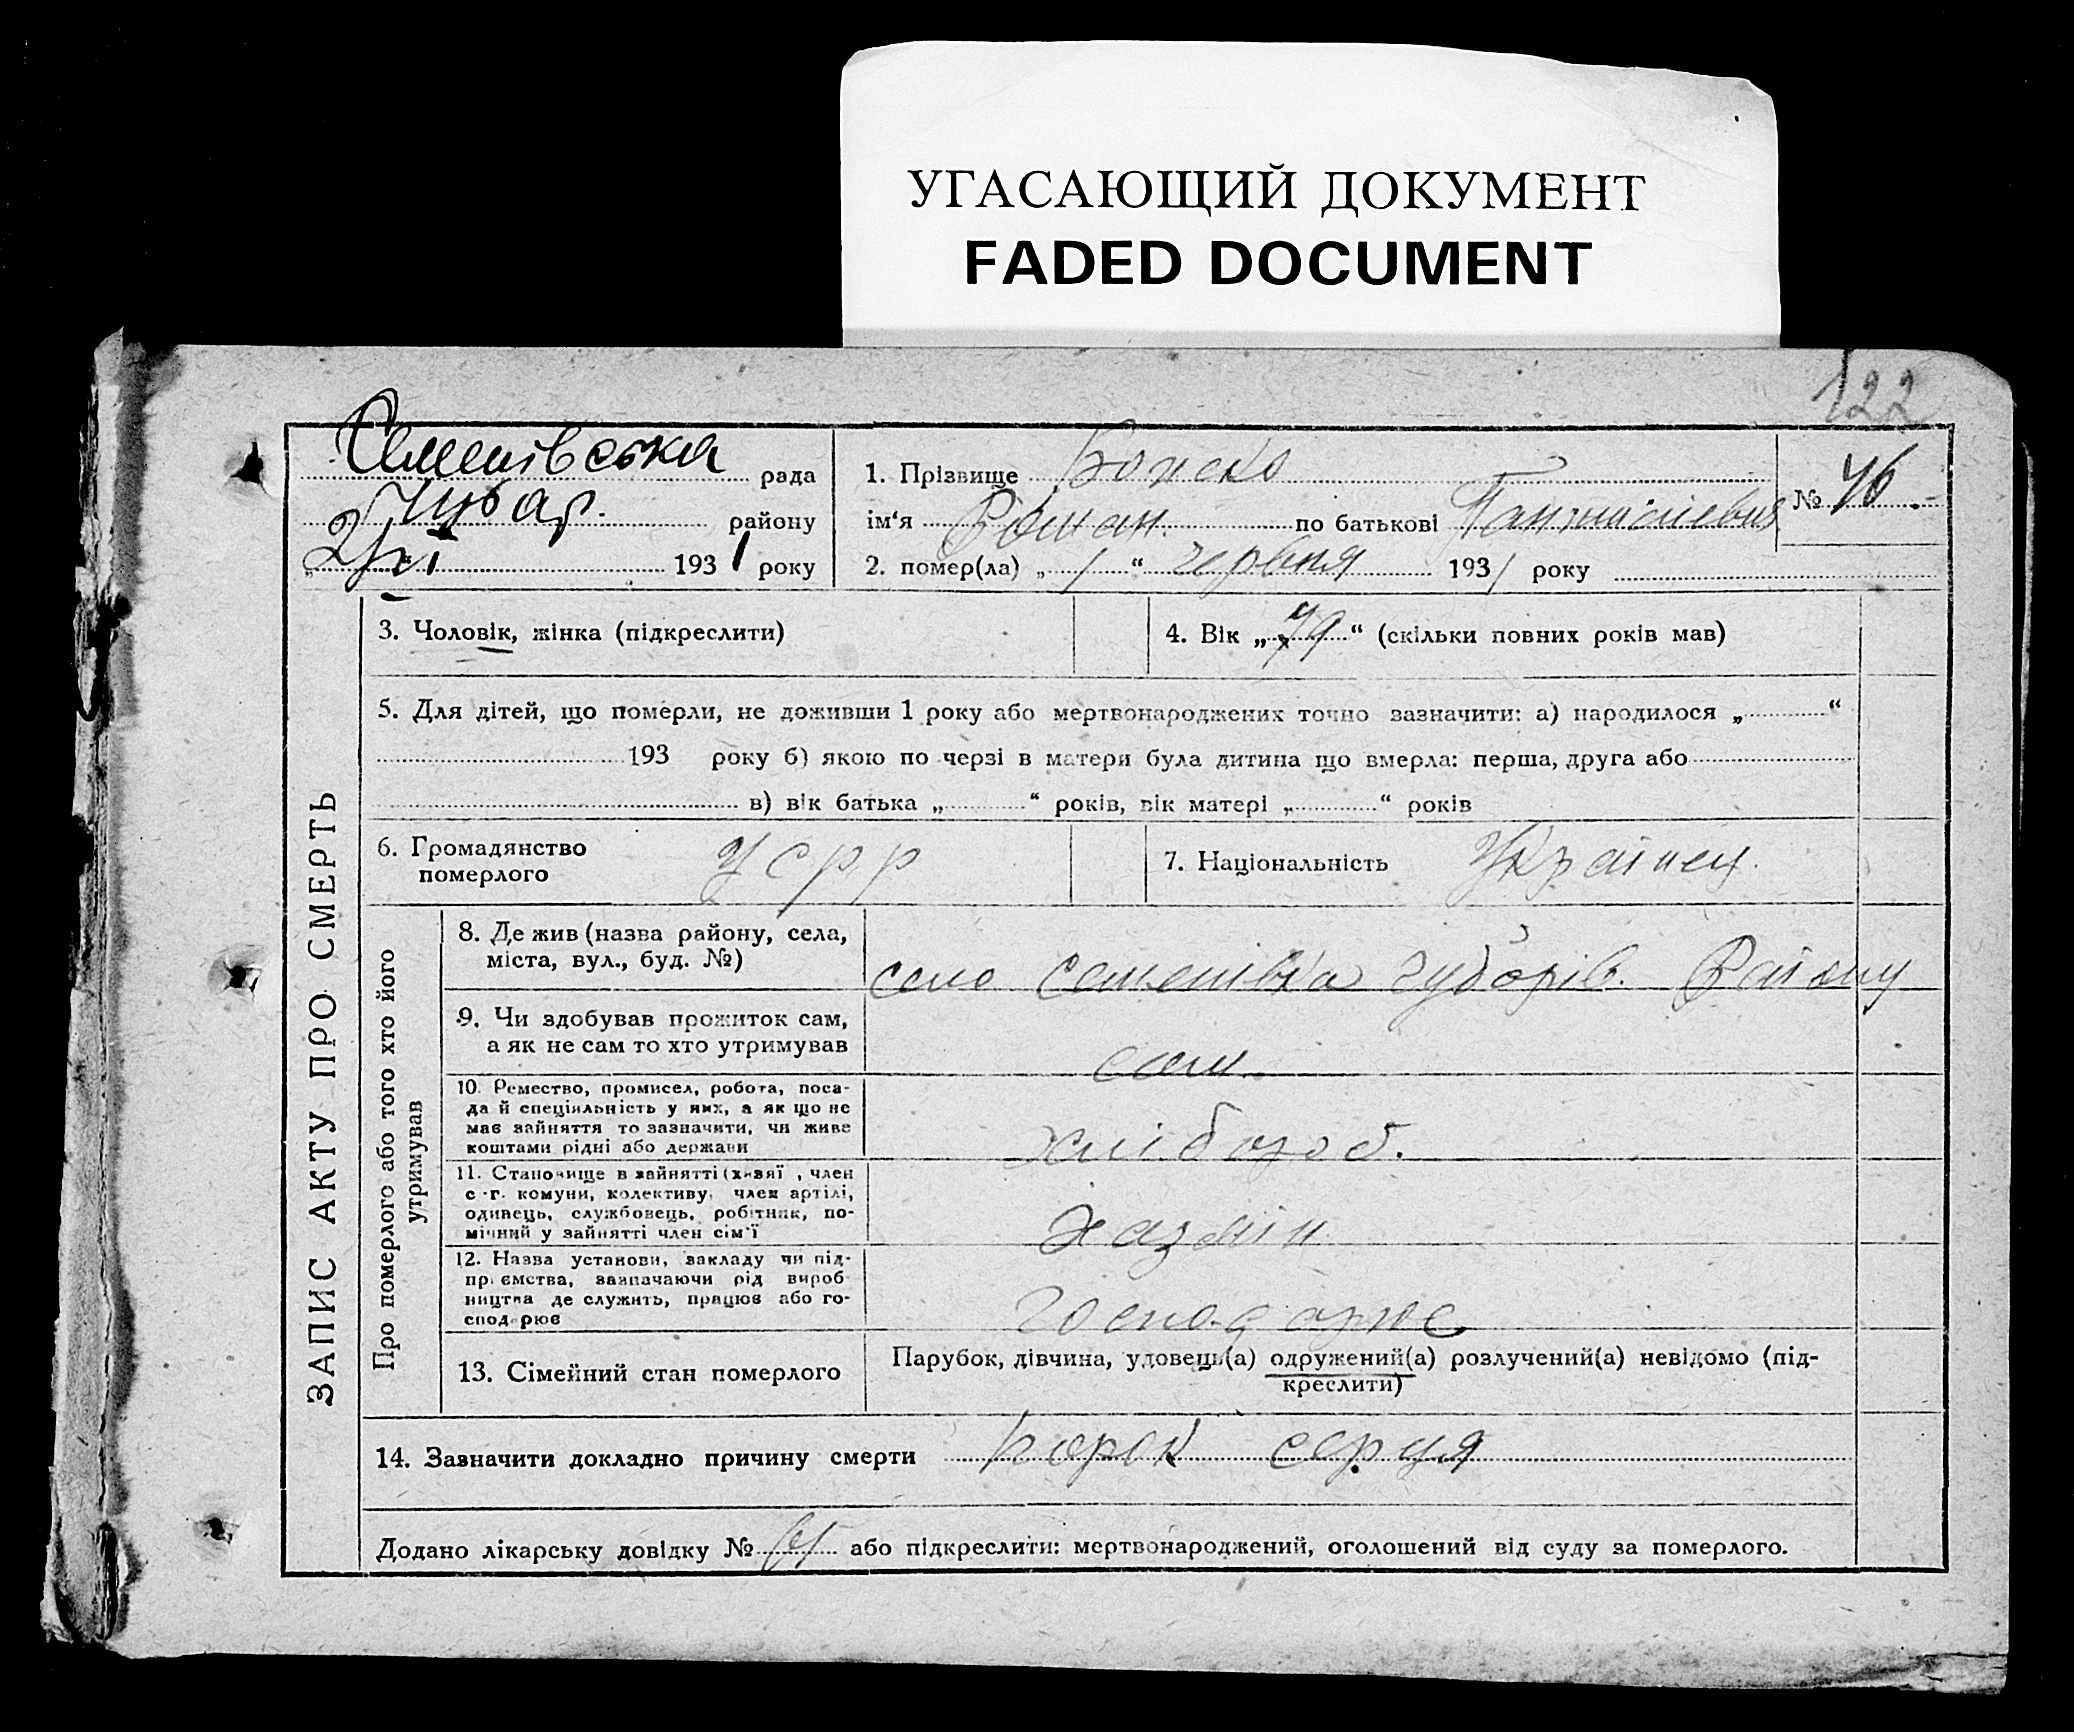 УГАСАЮЩИЙ ДОКУМЕНТ
FADED DOCUMENT
122
Семенівська рада
району
193 1 року
1. Прізвище Божко
ім‘я Роман. по батькові
№ 46
2. помер(ла) „ 1 “ червня 193 1 року
ЗАПИС АКТУ ПРО СМЕРТЬ
3. Чоловік, жінка (підкреслити)
4. Вік „ 79 “ (скільки повних років мав)
5. Для дітей, що померли, не доживши 1 року або мертвонароджених точно зазначити: а) народилося „ “
193 року б) якою по черзі в матери була дитина що вмерла: перша, друга або
в) вік батька „ “ років, вік матері „ “ років
6. Громадянство
померлого
УСРР
7. Національність Українец.
Про померлого або того хто його
утримував
8. Де жив (назва району, села,
міста, вул., буд. №)
село Семенівка Району
9. Чи здобував прожиток сам,
а як не сам то хто утримував
сам
10. Ремество, промисел, робота, поса-
да й спеціяльність у них, а як що не
має зайняття то зазначити, чи живе
коштами рідні або держави
хлібороб.
11. Становище в зайнятті (хазяї , член
с -г. комуни, колективу, член артілі,
одинець, службовець, робітник, по-
мічний у зайнятті член сім‘ї
Хазяїн
12. Назва установи, закладу чи під-
приємства, зазначаючи рід вироб-
ництва де служить, працює або го-
сподарює
Господарює
13. Сімейний стан померлого
Парубок, дівчина, удовець(а) одружений(а) розлучений(а) невідомо (під-
креслити)
14. Зазначити докладно причину смерти порок серця
Додано лікарську довідку № або підкреслити: мертвонароджений, оголошений від суду за померлого.